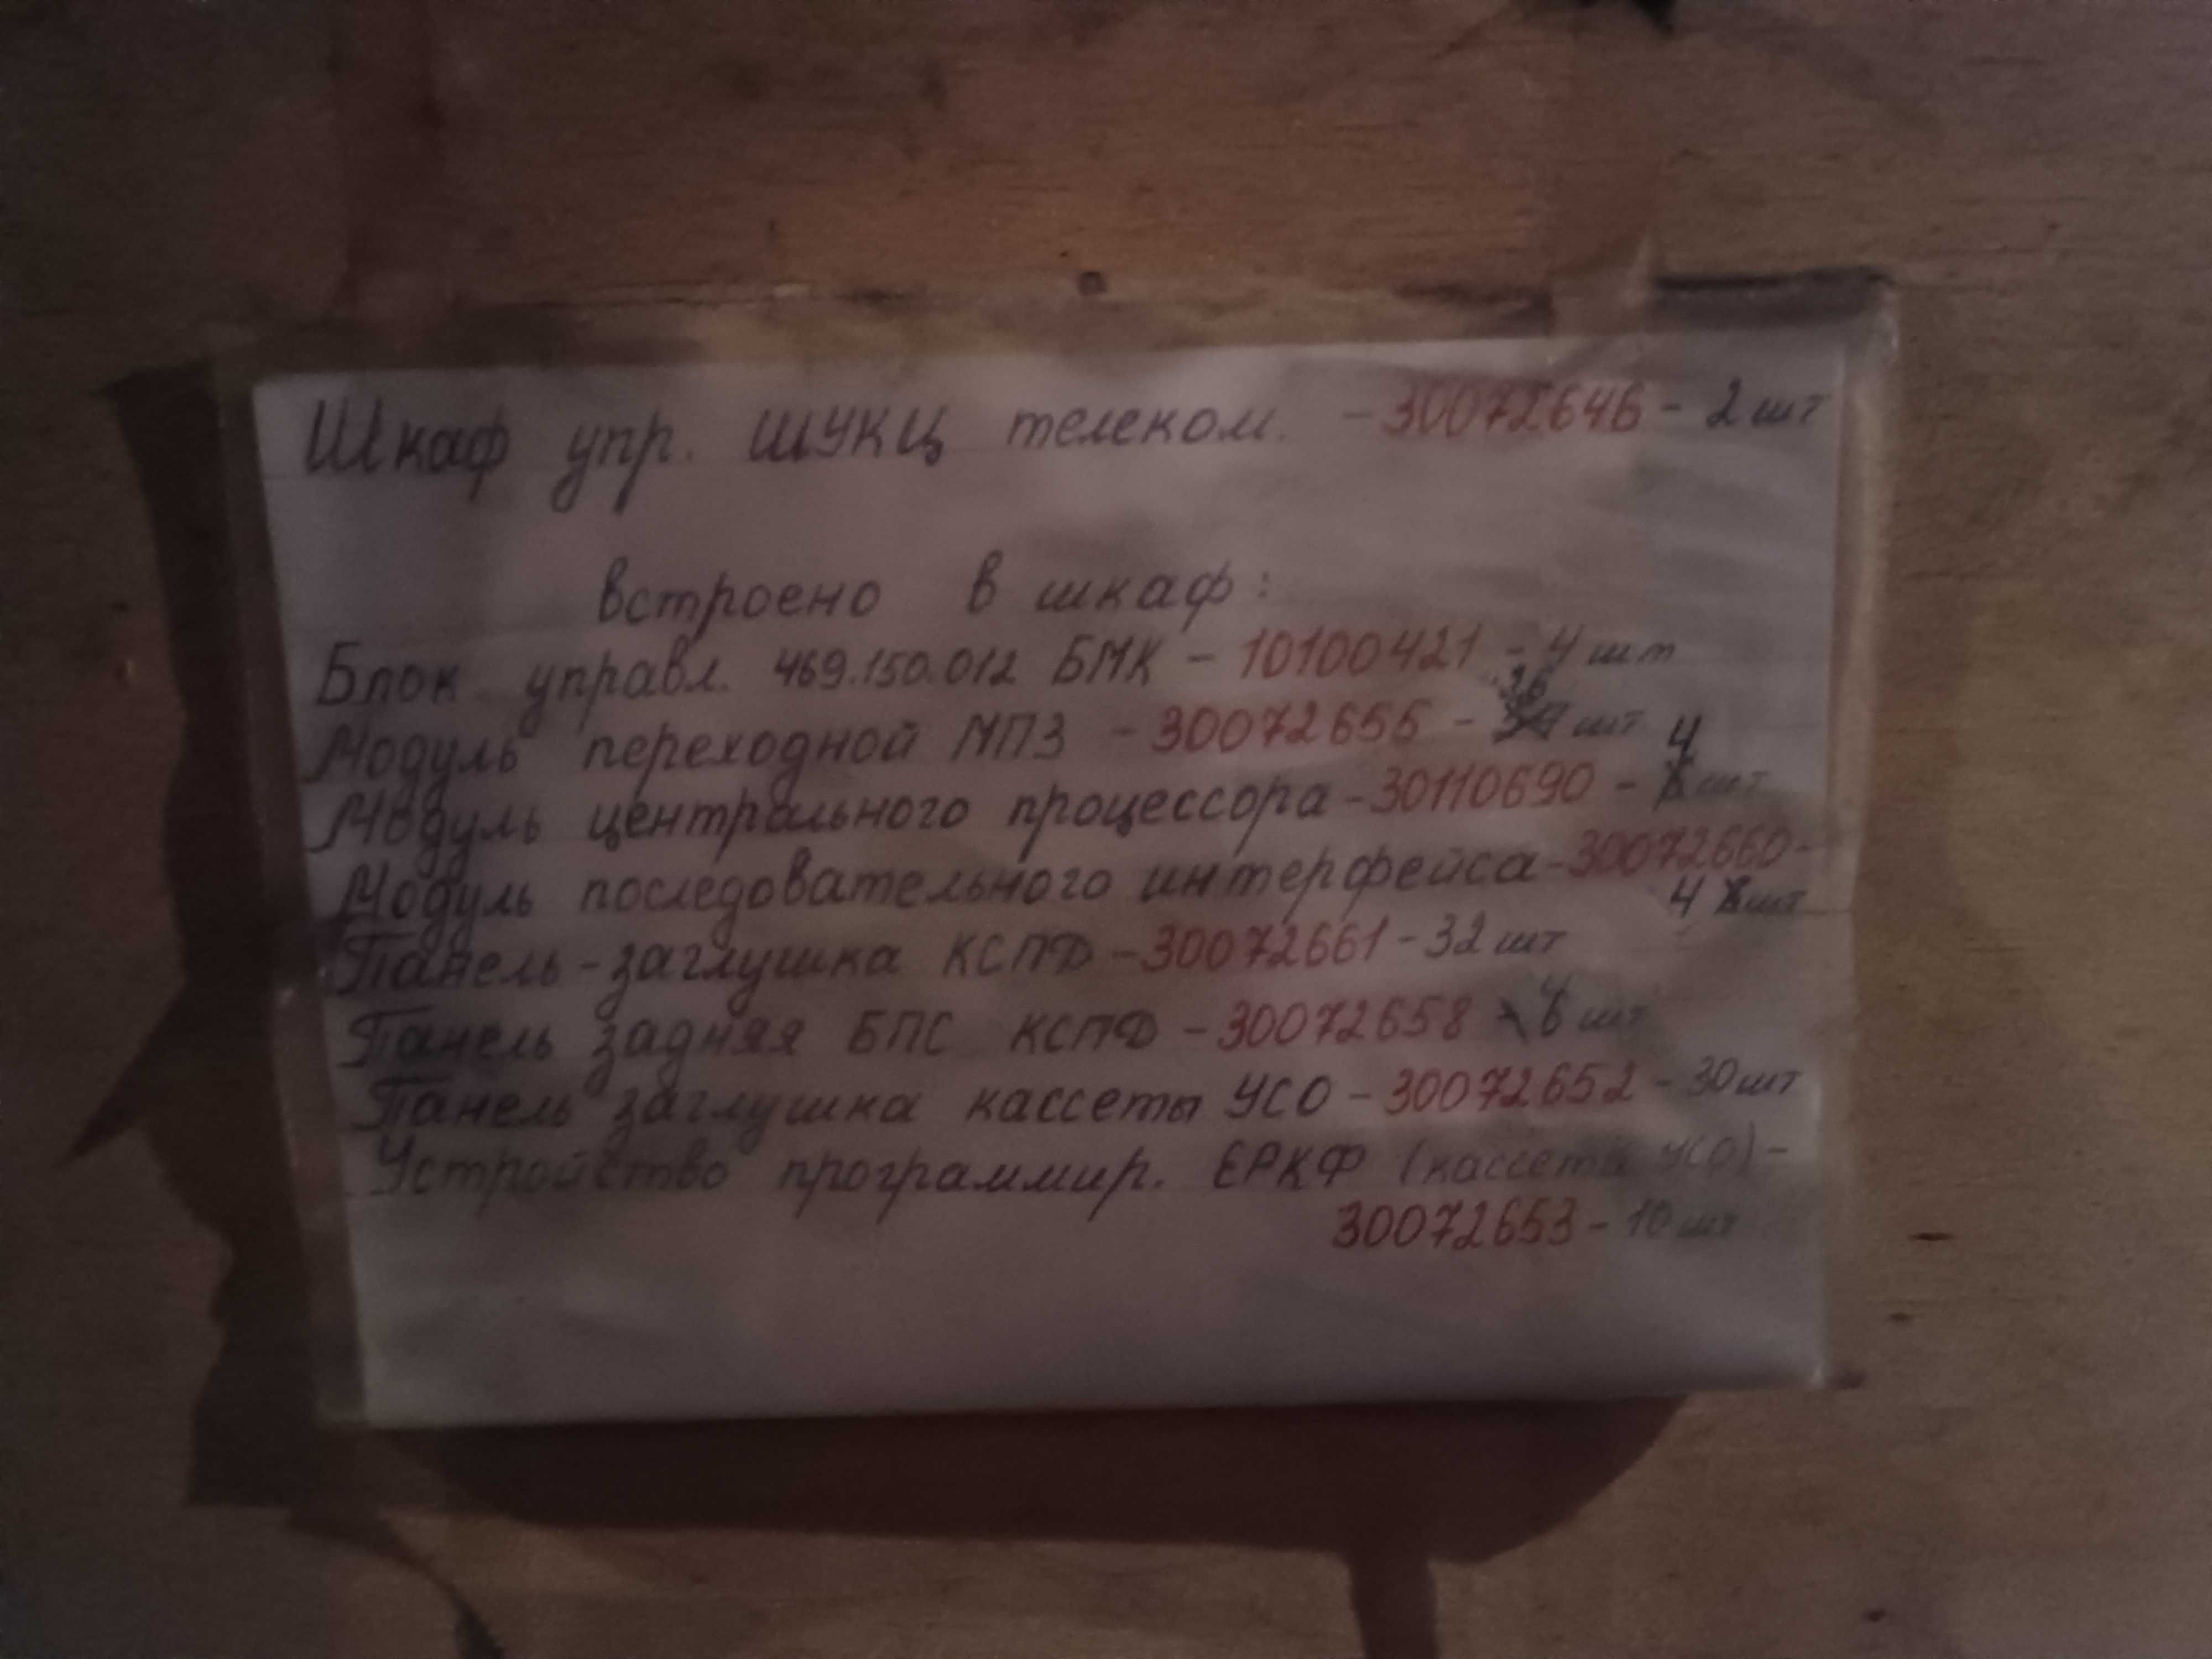 Шкаф упр. ШУКЦ телеком. - 30072646 - 2 шт
встроено в шкаф:
Блок управл. 469.150.012 БМК - 10100421 - 4 шт
Модуль переходной МПЗ - 30072655 - 36 шт
Модуль центрального процессора - 30110690 - 4 шт
Модуль последовательного интерфейса - 30072660 -
4 шт
Панель-заглушка КСПФ - 30072661 - 32 шт
Панель задняя БПС КСПФ - 30072658 шт
Панель заглушка кассеты УСО - 30072652 - 30 шт
Устройство программир. ЕРКФ (кассета УСО) -
30072653 - 10 шт